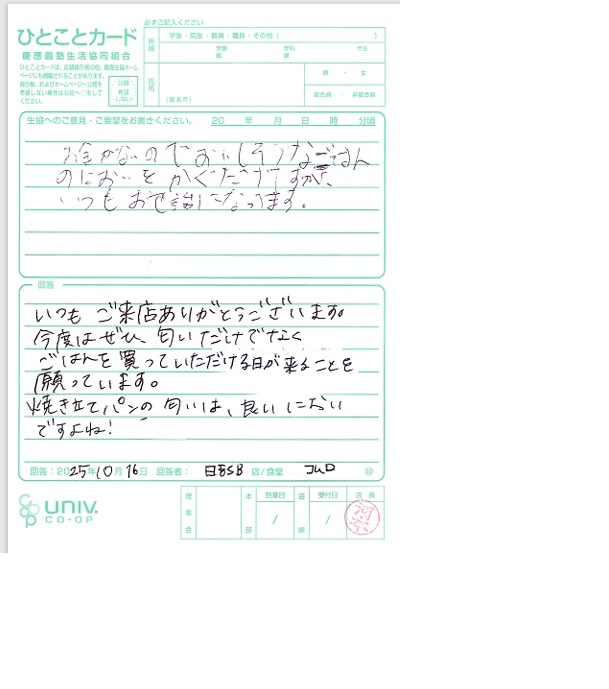 必ずご記入ください
ひとことカード
慶應義塾生活協同組合
ひとことカードは、店舗掲示板の他、慶應生協ホームページにも掲載されることがあります。
掲示板、およびホームページへ公開を希望しない場合は右記へ○をしてください。
公開希望しない
所属
学生・院生・教員・職員・その他(　　)
学部
学科
年生
部
課
氏名
(匿名可)
男・女
組合員・非組合員
生協へのご意見・ご要望をお書きください。 20　年　月　日　時　分頃
お金がないのでおいしそうなごはん
のにおいをかぐだけですが、
いつもお世話になってます。
回答
いつもご来店ありがとうございます。
今度はぜひ、匂いだけでなく
ごはんを買っていただける日が来ることを
願っています。
焼き立てパンの匂いは、良いにおい
ですよね!
回答：2025年10月16日 回答者： 日吉SB 店/食堂 ㊞
UNIV.
CO-OP
理事会
本部
到着日
/
店舗
受付日
/
店長